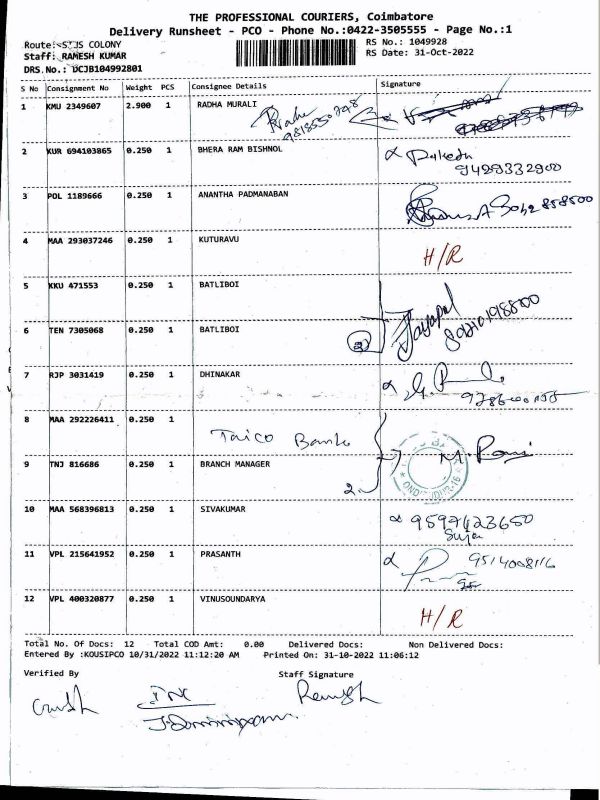 THE PROFESSIONAL COURIERS, Coimbatore
Delivery Runsheet - PCO - Phone No.:0422-3505555 - Page No.:1
Route: COLONY
RS No.: 1049928
Staff: RAMESH KUMAR
RS Date: 31-Oct-2022
DRS.No.: DCJB104992801
S No Consignment No Weight PCS Consignee Details Signature
1 KMU 2349607 2.900 1 RADHA MURALI
2 KUR 694103865 0.250 1 BHERA RAM BISHNOL
9429332900
3 POL 1189666 0.250 1 ANANTHA PADMANABAN
4 MAA 293037246 0.250 1 KUTURAVU
H/R
5 KKU 471553 0.250 1 BATLIBOI
Jayapal
6 TEN 7305068 0.250 1 BATLIBOI
2
7 RJP 3031419 0.250 1 DHINAKAR
8 MAA 292226411 0.250 1
Taico Bank
9 TNJ 816686 0.250 1 BRANCH MANAGER
M. Rani
2
10 MAA 568396813 0.250 1 SIVAKUMAR
9597423650
11 VPL 215641952 0.250 1 PRASANTH
9514008116
12 VPL 400320877 0.250 1 VINUSOUNDARYA
H/R
Total No. Of Docs: 12 Total COD Amt: 0.00 Delivered Docs: Non Delivered Docs:
Entered By :KOUSIPCO 10/31/2022 11:12:20 AM Printed On: 31-10-2022 11:06:12
Verified By Staff Signature
Ramesh